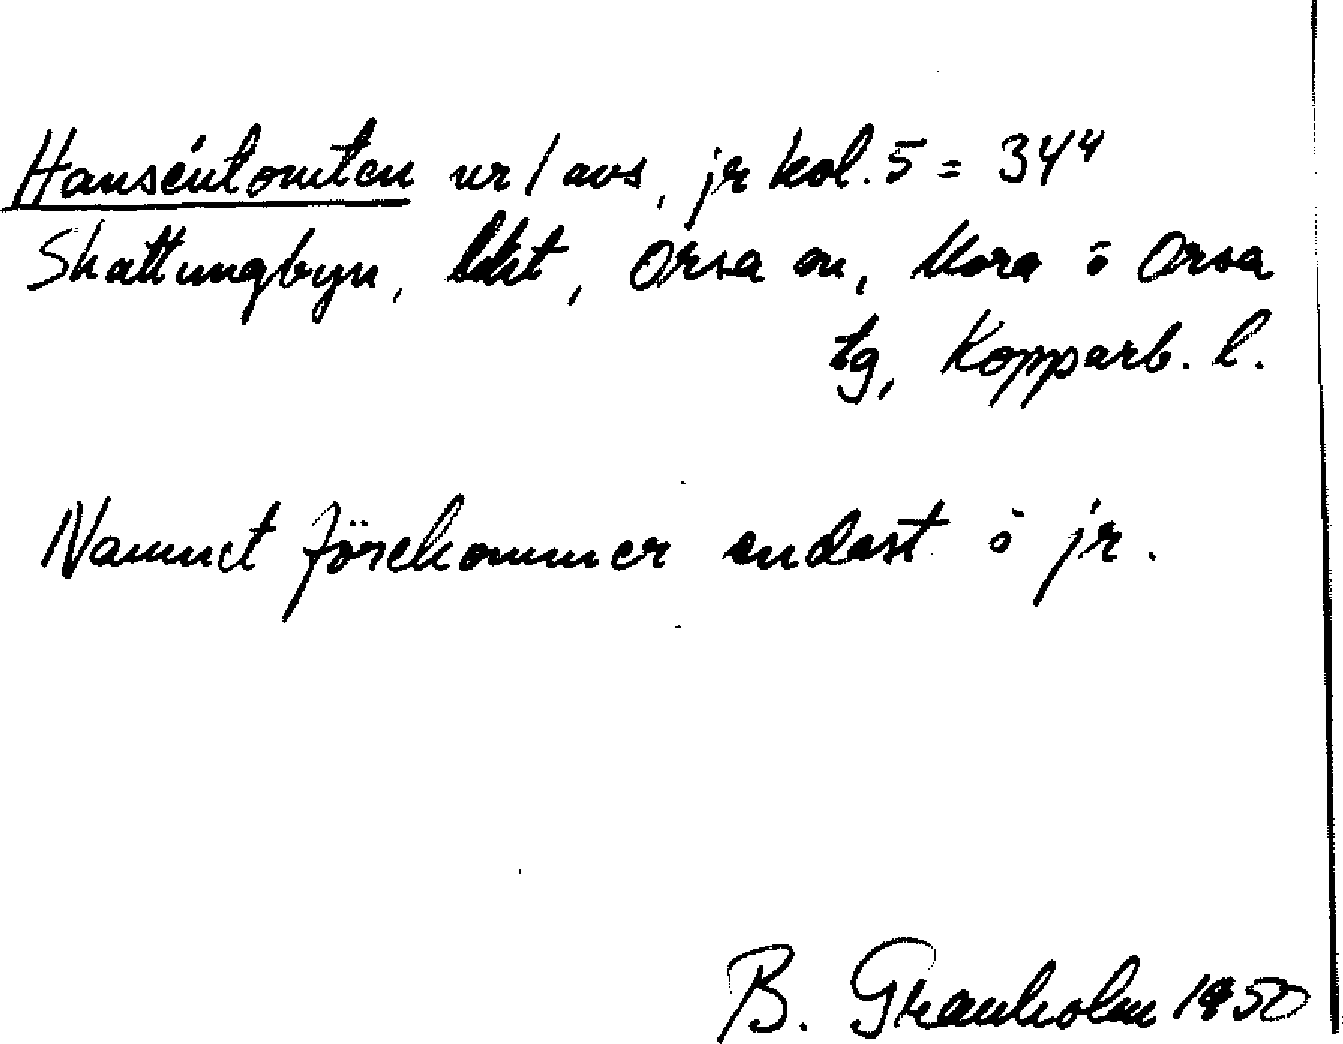 Hanséntomten ur / avs, jr kol. 5 = 344
Skattungbyn, Orsa sn, Mora o Orsa
tg, Kopparb. l.
Namnet förekommer endast i jr.
B. Granholm 1950